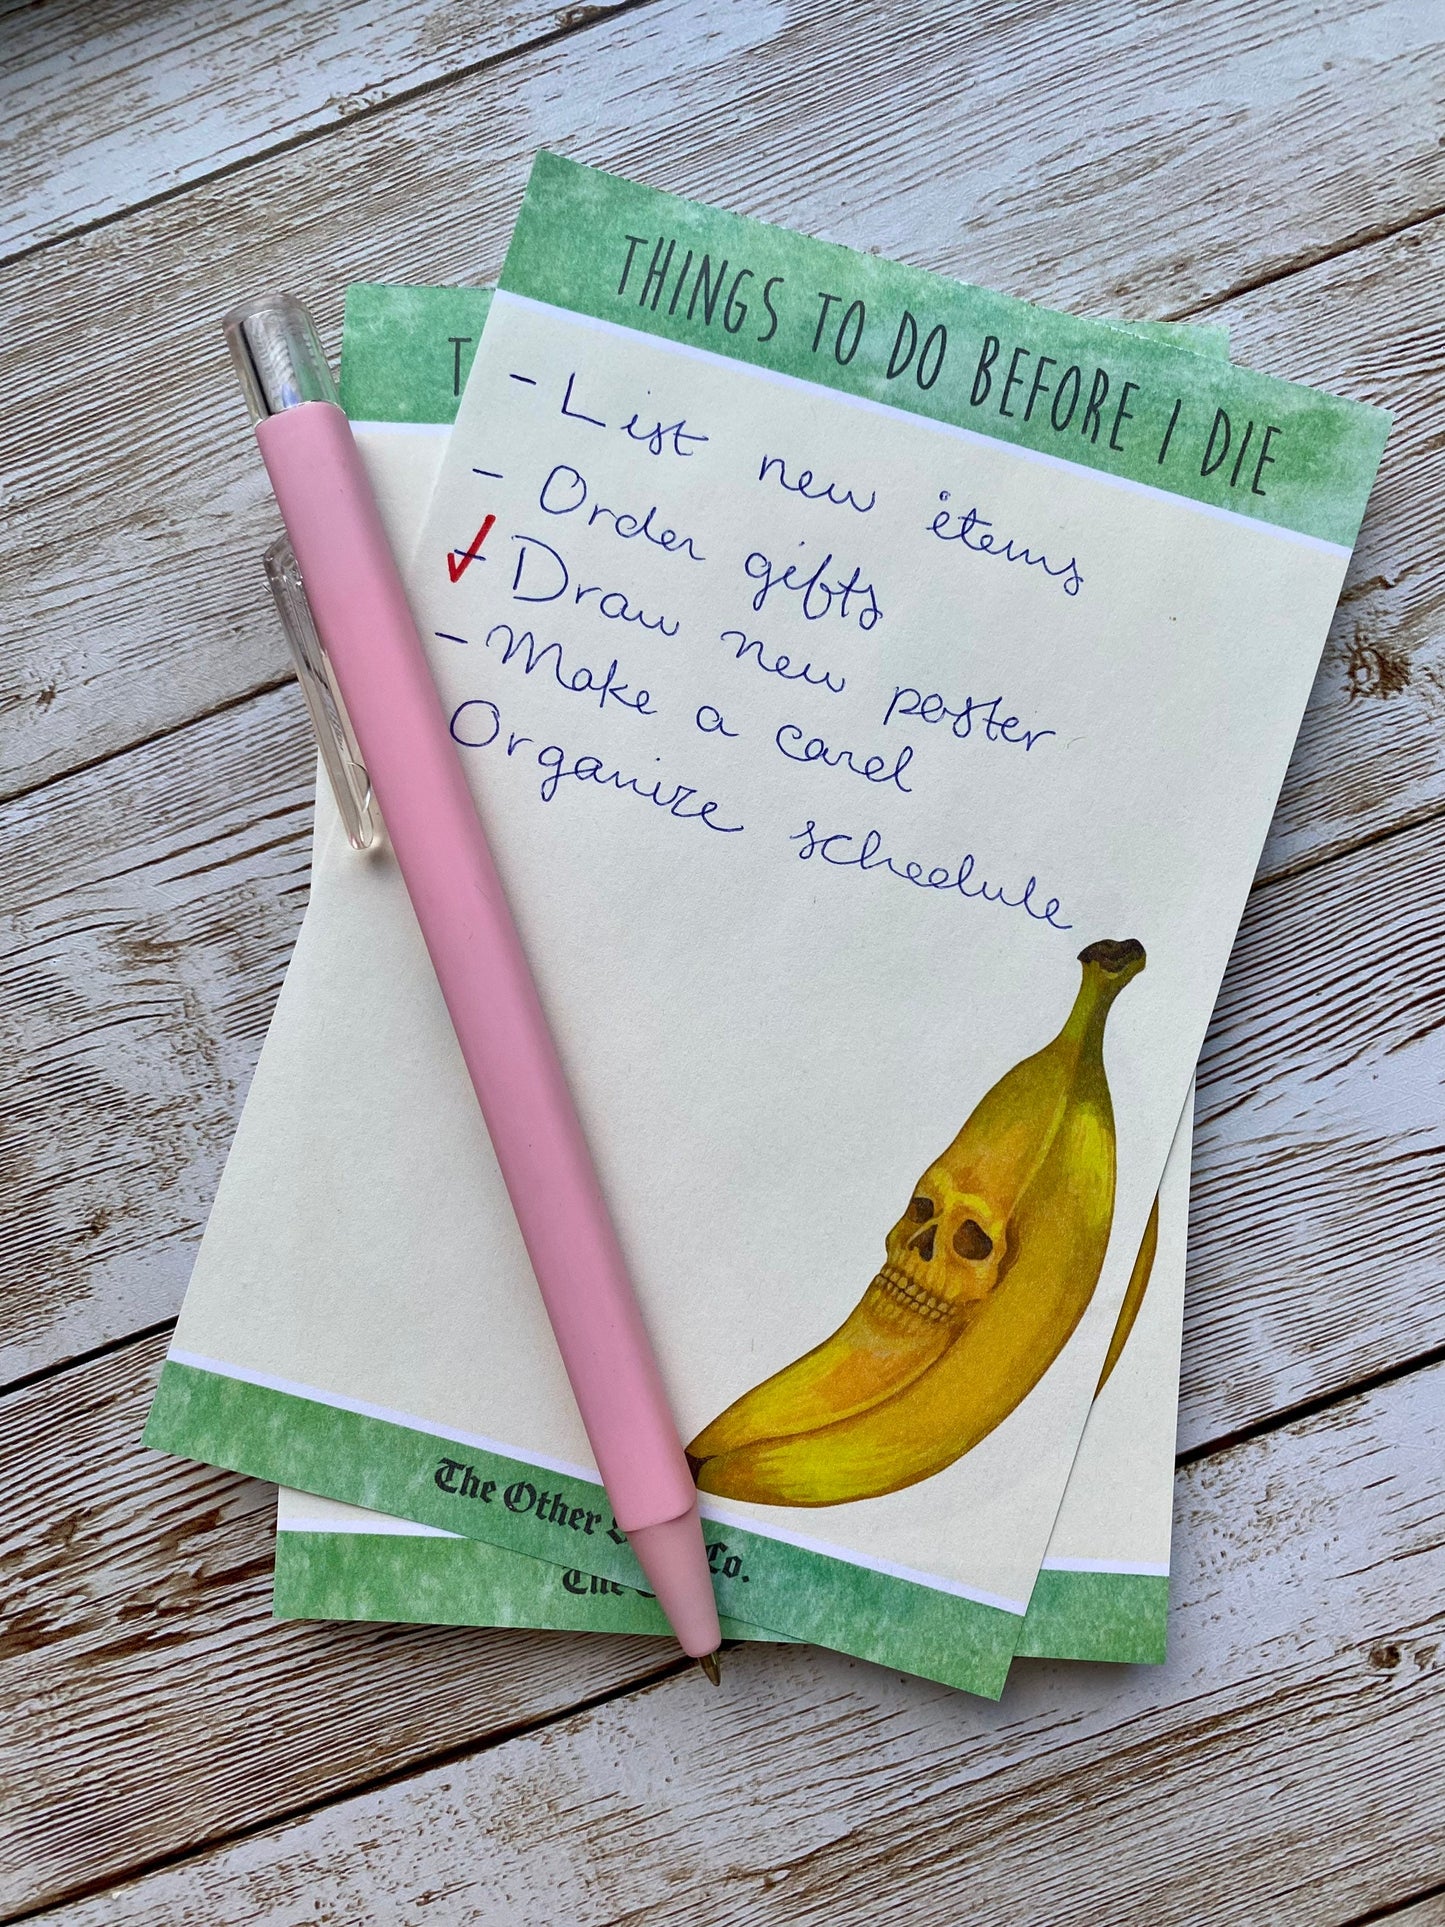 THINGS TO DO BEFORE I DIE
T
- List new items
- Order gifts
- Draw new poster
- Make a card
Organize schedule
The Other Co.
The